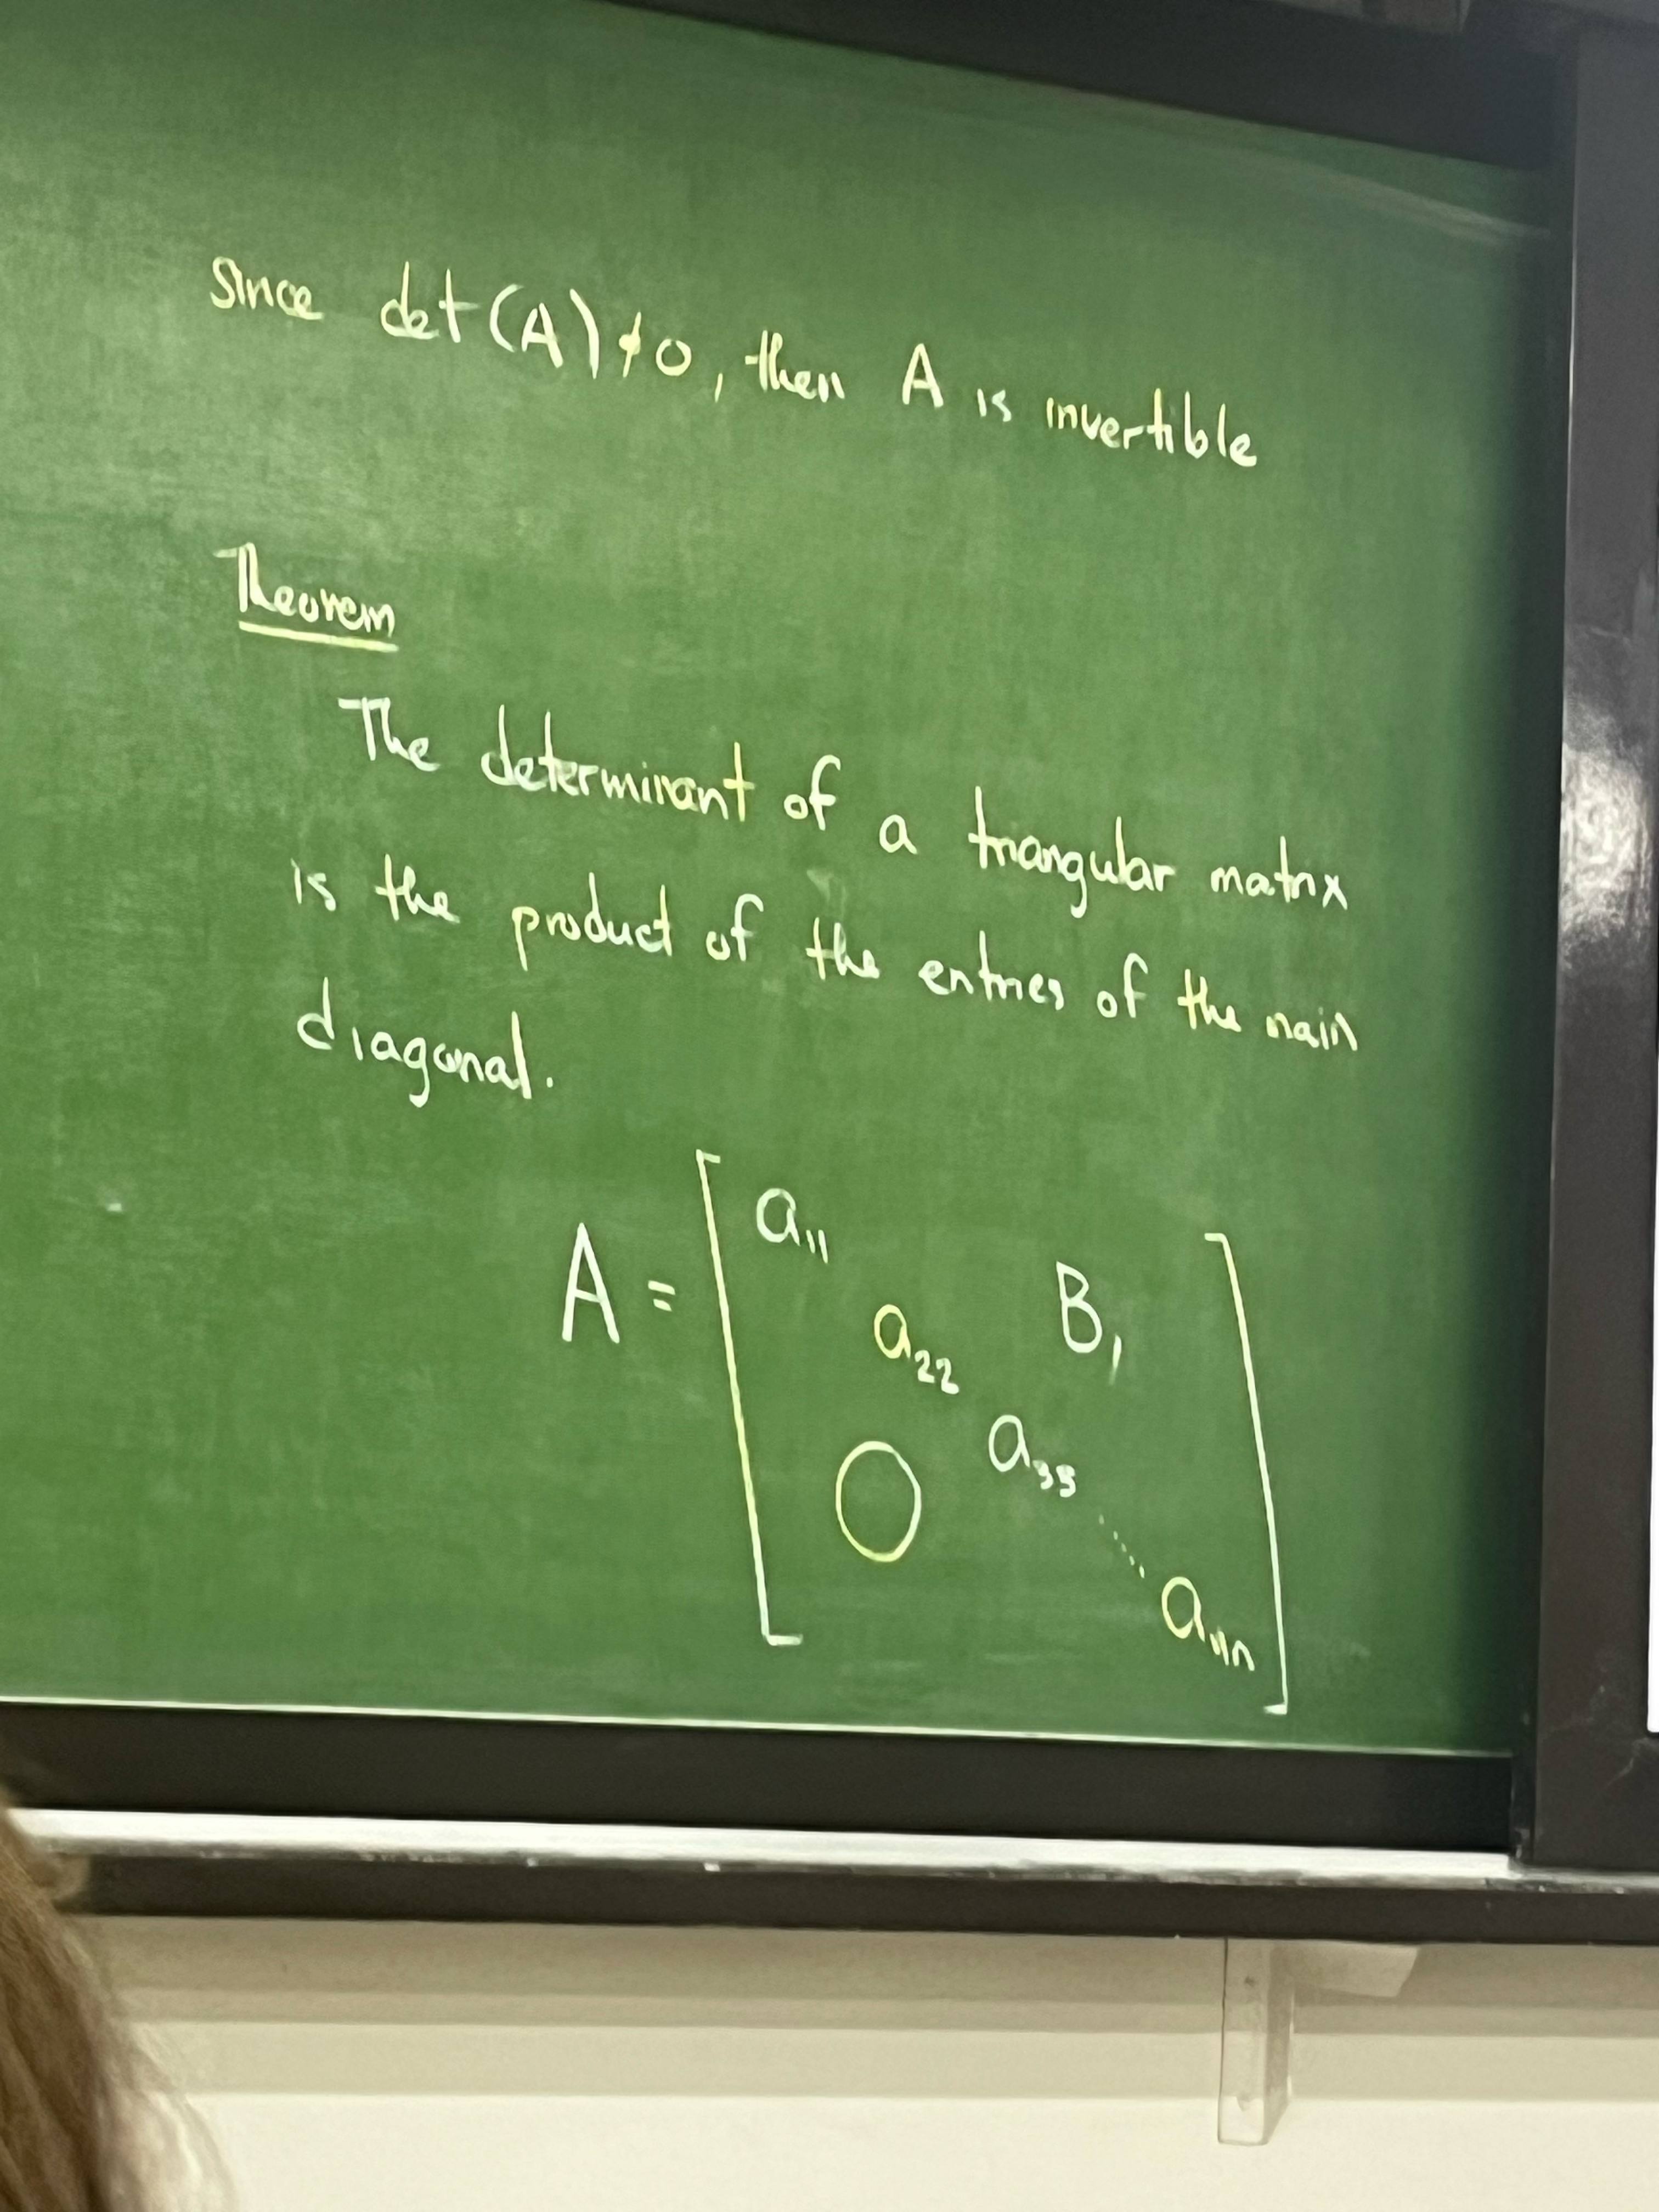 Since det(A)≠0, then A is invertible
Theorem
The determinant of a triangular matrix
is the product of the entries of the main
diagonal.
A = [ a₁₁
a₂₂ B₁
O a₃₃
⋱
aₙₙ ]